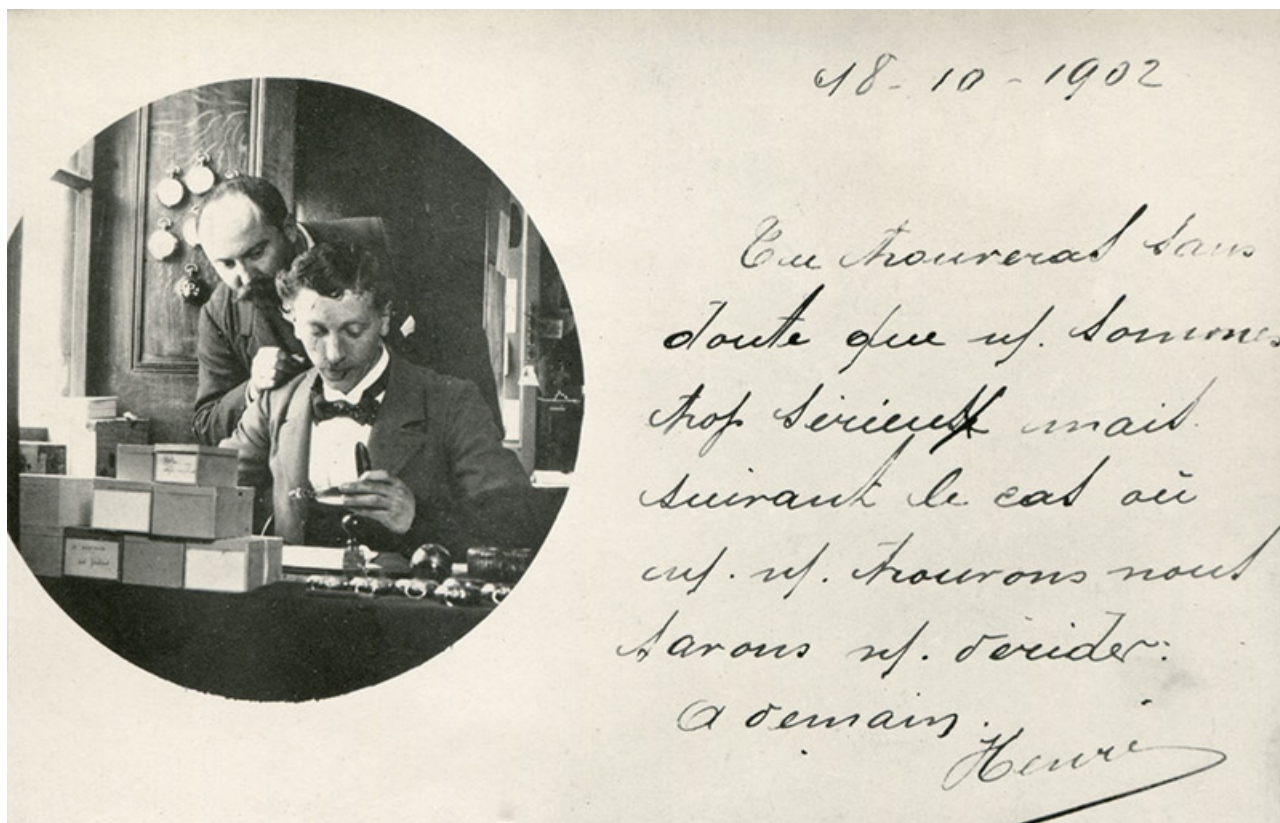 18-10-1902
Tu trouveras sans
doute que ns. sommes
trop sérieux mais
suivant le cas où
ns. ns. trouvons nous
savons ns. dérider.
A demain.
Henri